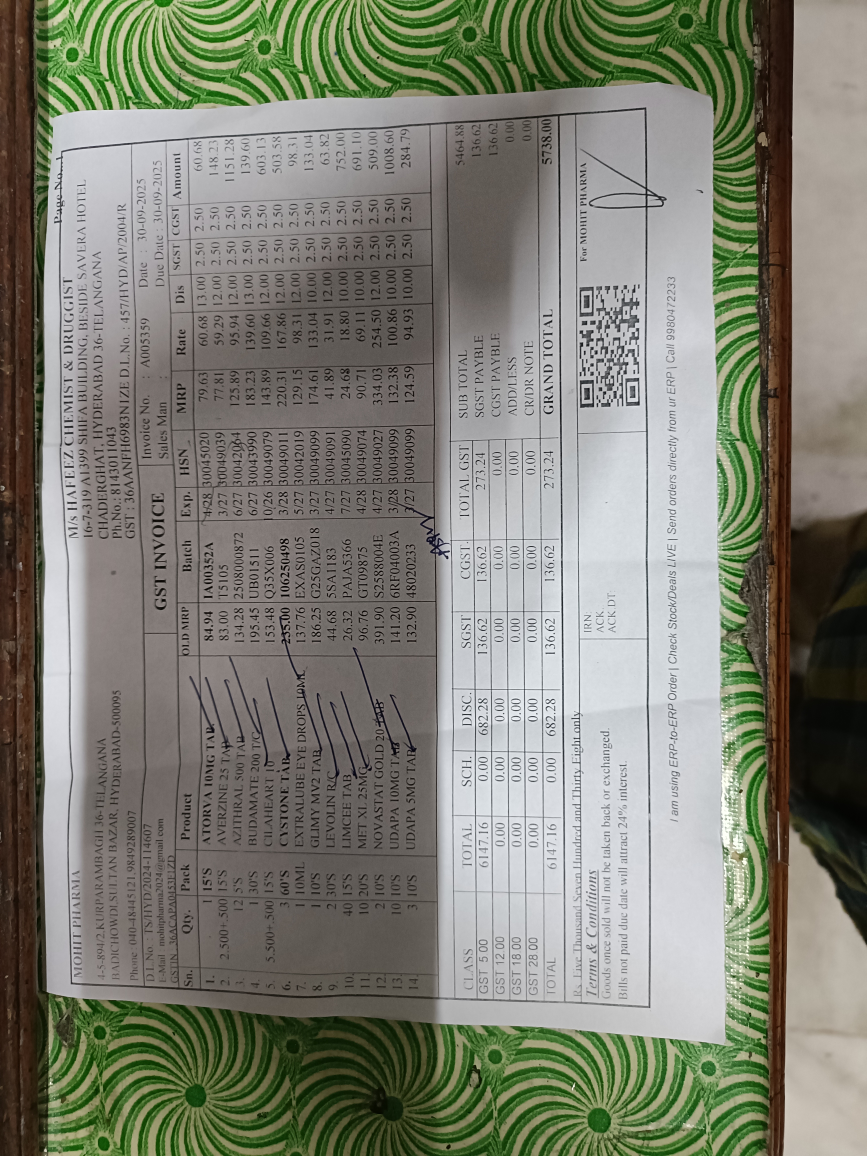 Page No...1
MOHIT PHARMA
4-5-894/2,KURPARAMBAGH 36-TELANGANA
BADICHOWDI,SULTAN BAZAR, HYDERABAD-500095
Phone : 040-48445121,9849289007
D.L.No. : TS/HYD/2024-114607
E-Mail : mohitpharma2024@gmail.com
M/s HAFEEZ CHEMIST & DRUGGIST
16-7-319 A1399 SHIFA BUILDING, BESIDE SAVERA HOTEL
CHADERGHAT, HYDERABAD 36-TELANGANA
Ph.No.: 8143011043
GST : 36AANFH6983N1ZE D.L.No. : 457/HYD/AP/2004/R
GST INVOICE
Invoice No. : A005359 Date : 30-09-2025
Sales Man : Due Date : 30-09-2025
Sn. Qty. Pack Product OLD MRP Batch Exp. HSN MRP Rate Dis SGST CGST Amount
1. 1 15'S ATORVA 10MG TAB 84.94 IA00352A 4/28 30045020 79.63 60.68 13.00 2.50 2.50 60.68
2. 2.500+.500 15'S AVERZINE 25 TAB 83.00 T5105 3/27 30049039 77.81 59.29 12.00 2.50 2.50 148.23
3. 12 5'S AZITHRAL 500 TAB 134.28 2508000872 6/27 30042064 125.89 95.94 12.00 2.50 2.50 1151.28
4. 1 30'S BUDAMATE 200 T/C 195.45 UB01511 6/27 30043990 183.23 139.60 13.00 2.50 2.50 139.60
5. 5.500+.500 15'S CILAHEART 10 153.48 Q35X006 10/26 30049079 143.89 109.66 12.00 2.50 2.50 603.13
6. 3 60'S CYSTONE TAB 235.00 106250498 3/28 30049011 220.31 167.86 12.00 2.50 2.50 503.58
7. 1 10ML EXTRALUBE EYE DROPS 10ML 137.76 EXAS0105 5/27 30042019 129.15 98.31 12.00 2.50 2.50 98.31
8. 1 10'S GLIMY MV2 TAB 186.25 G25GAZ018 3/27 30049099 174.61 133.04 10.00 2.50 2.50 133.04
9. 2 30'S LEVOLIN R/C 44.68 5SA1183 4/27 30049091 41.89 31.91 12.00 2.50 2.50 63.82
10. 40 15'S LIMCEE TAB 26.32 PAJA5366 7/27 30045090 24.68 18.80 10.00 2.50 2.50 752.00
11. 10 20'S MET XL 25MG 96.76 GT09875 4/28 30049074 90.71 69.11 10.00 2.50 2.50 691.10
12. 2 10'S NOVASTAT GOLD 20 TAB 391.90 S2588004E 4/27 30049027 334.03 254.50 12.00 2.50 2.50 509.00
13. 10 10'S UDAPA 10MG TAB 141.20 6RF04003A 3/28 30049099 132.38 100.86 10.00 2.50 2.50 1008.60
14. 3 10'S UDAPA 5MG TAB 132.90 48020233 3/27 30049099 124.59 94.93 10.00 2.50 2.50 284.79
CLASS TOTAL SCH. DISC. SGST CGST. TOTAL GST
GST 5.00 6147.16 0.00 682.28 136.62 136.62 273.24
GST 12.00 0.00 0.00 0.00 0.00 0.00 0.00
GST 18.00 0.00 0.00 0.00 0.00 0.00 0.00
GST 28.00 0.00 0.00 0.00 0.00 0.00 0.00
TOTAL 6147.16 0.00 682.28 136.62 136.62 273.24
SUB TOTAL 5464.88
SGST PAYBLE 136.62
CGST PAYBLE 136.62
ADD/LESS 0.00
CR/DR NOTE 0.00
GRAND TOTAL 5738.00
Rs. Five Thousand Seven Hundred and Thirty Eight only
Terms & Conditions
Goods once sold will not be taken back or exchanged.
Bills not paid due date will attract 24% interest.
IRN
ACK.
ACK.DT
For MOHIT PHARMA
I am using ERP-to-ERP Order | Check Stock/Deals LIVE | Send orders directly from ur ERP | Call 9980472233